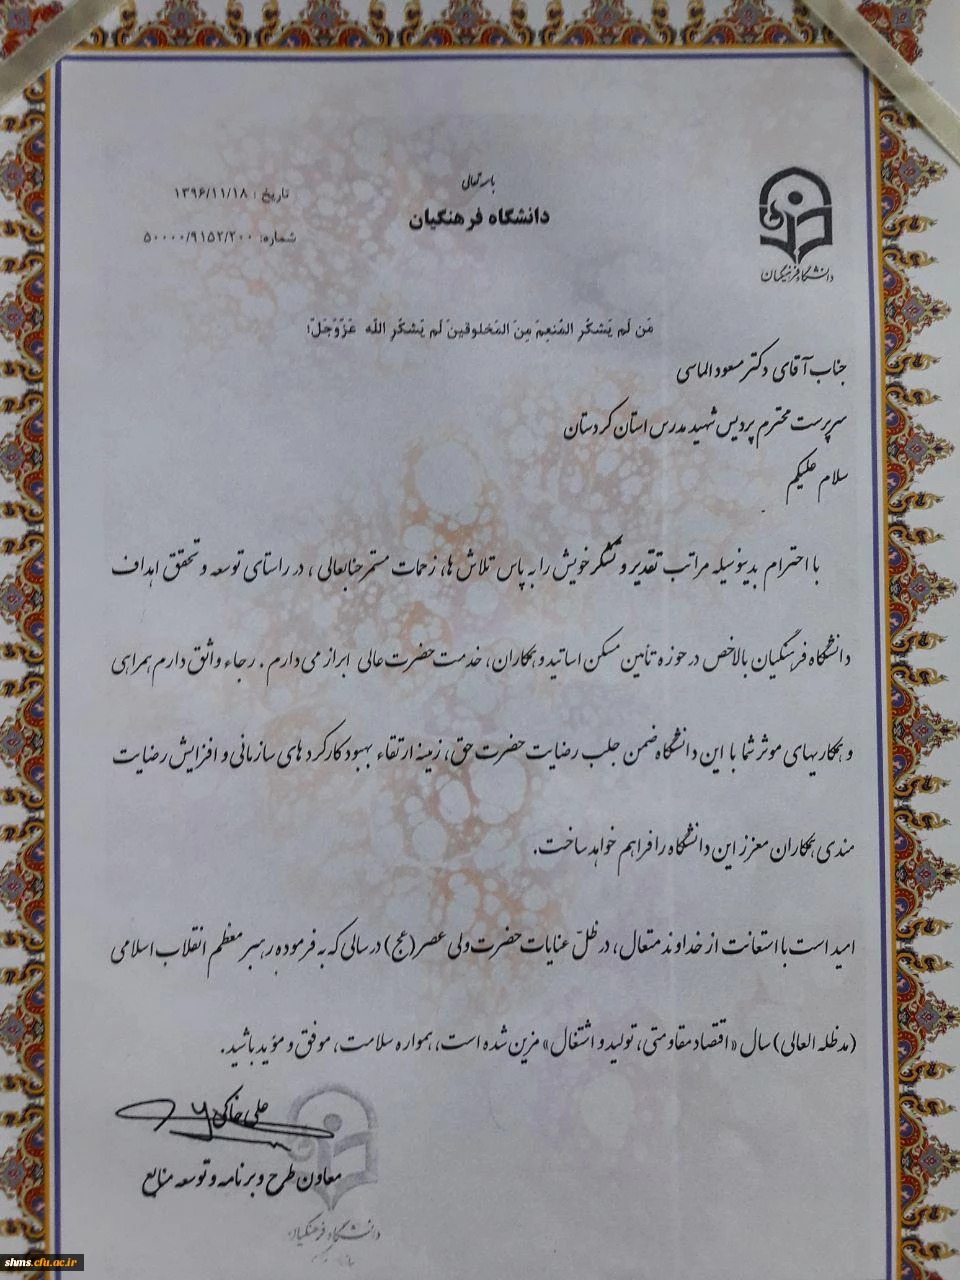 باسمه تعالی
دانشگاه فرهنگیان
تاریخ : ۱۳۹۶/۱۱/۱۸
شماره: ۵۰۰۰۰/۹۱۵۲/۲۰۰
دانشگاه فرهنگیان
مَن لَم یَشکُرِ المُنعِمَ مِنَ المَخلوقینَ لَم یَشکُرِ اللّه عَزَّوَجَلَّ؛
جناب آقای دکتر مسعود الماسی
سرپرست محترم پردیس شهید مدرس استان کردستان
سلام علیکم
با احترام بدینوسیله مراتب تقدیر و تشکر خویش را به پاس تلاش ها، زحمات مستمر جنابعالی ، در راستای توسعه و تحقق اهداف
دانشگاه فرهنگیان بالاخص در حوزه تأمین مسکن اساتید و همکاران، خدمت حضرت عالی ابراز می دارم . رجاء واثق دارم همراهی
و همکاریهای موثر شما با این دانشگاه ضمن جلب رضایت حضرت حق، زمینه ارتقاء بهبود کارکرد های سازمانی و افزایش رضایت
مندی همکاران معزز این دانشگاه را فراهم خواهد ساخت.
امید است با استعانت از خداوند متعال، در ظلّ عنایات حضرت ولی عصر(عج) در سالی که به فرموده رهبر معظم انقلاب اسلامی
(مدظله العالی) سال «اقتصاد مقاومتی، تولید و اشتغال» مزین شده است، همواره سلامت، موفق و مؤید باشید.
علی خاکی
معاون طرح و برنامه و توسعه منابع
دانشگاه فرهنگیان
shms.cfu.ac.ir